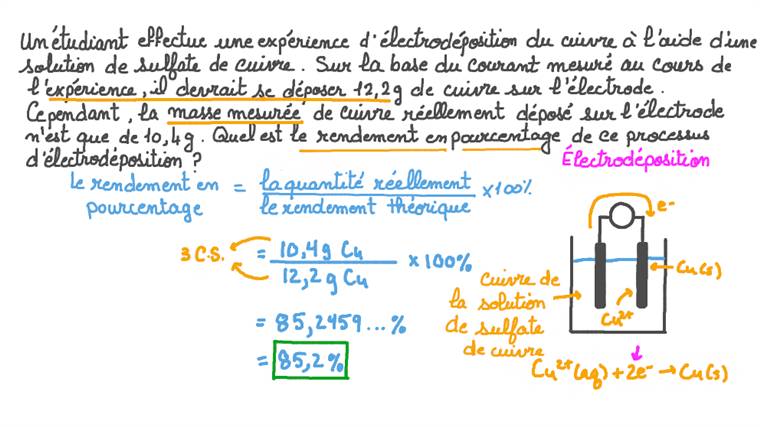 Un étudiant effectue une expérience d'électrodéposition du cuivre à l'aide d'une
solution de sulfate de cuivre. Sur la base du courant mesuré au cours de
l'expérience, il devrait se déposer 12,2g de cuivre sur l'électrode.
Cependant, la masse mesurée de cuivre réellement déposé sur l'électrode
n'est que de 10,4g. Quel est le rendement en pourcentage de ce processus
d'électrodéposition ?
Électrodéposition
le rendement en pourcentage = la quantité réellement / le rendement théorique × 100%
3 C.S. = 10,4g Cu / 12,2g Cu × 100%
= 85,2459...%
= 85,2%
e-
Cu(s)
Cu²⁺
cuivre de
la solution
de sulfate
de cuivre
Cu²⁺(aq) + 2e⁻ → Cu(s)